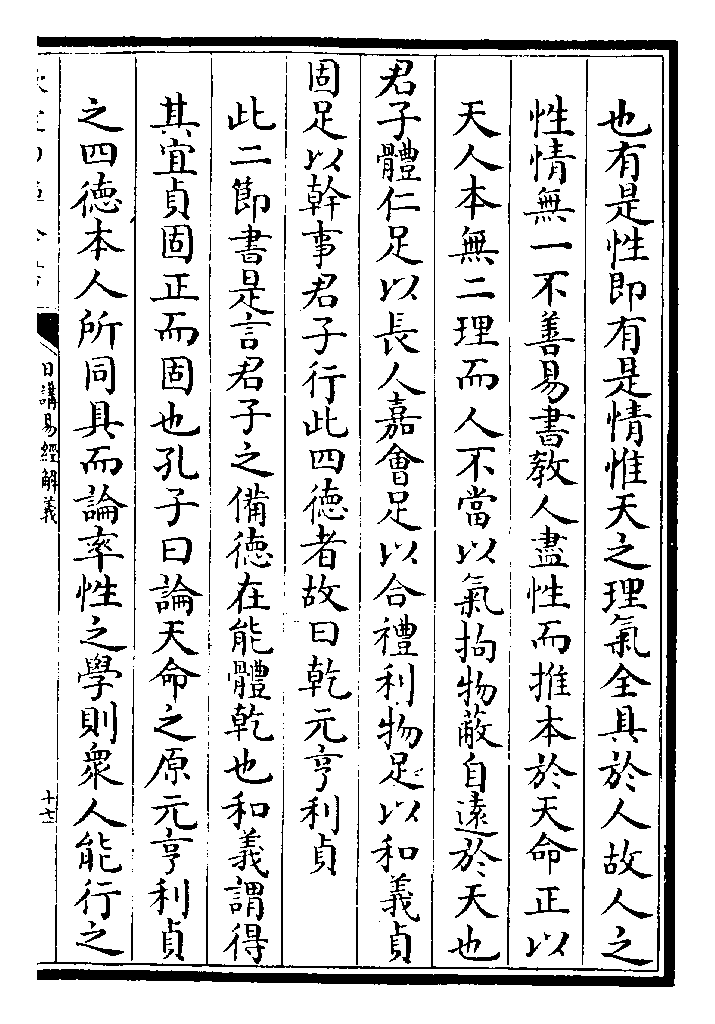 也有是性即有是情惟天之理氣全具於人故人之
性情無一不善易書教人盡性而推本於天命正以
天人本無二理而人不當以氣拘物蔽自遠於天也
君子體仁足以長人嘉會足以合禮利物足以和義貞
固足以幹事君子行此四德者故曰乾元亨利貞
此二節書是言君子之備德在能體乾也和義謂得
其宜貞固正而固也孔子曰論天命之原元亨利貞
之四德本人所同具而論率性之學則衆人能行之
日講易經解義